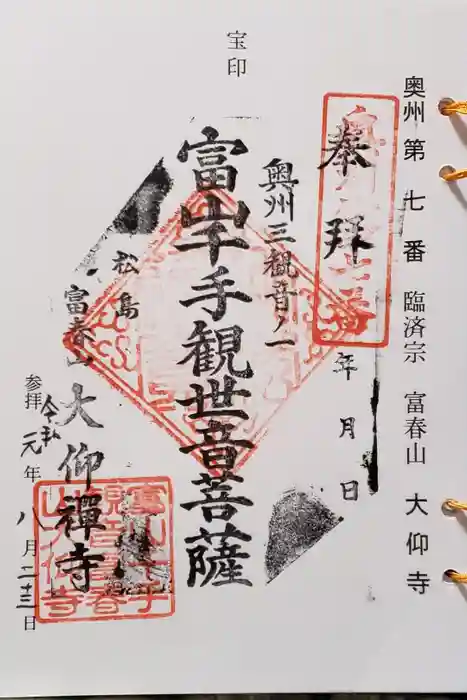 奥州 第 七 番 臨済宗 富春山 大仰寺
奉拝
年 月 日
奥州三観音ノ一
富山千手観世音菩薩
宝印
松島
富春山
大仰禅寺
参拝 令和元年 八月二十三日